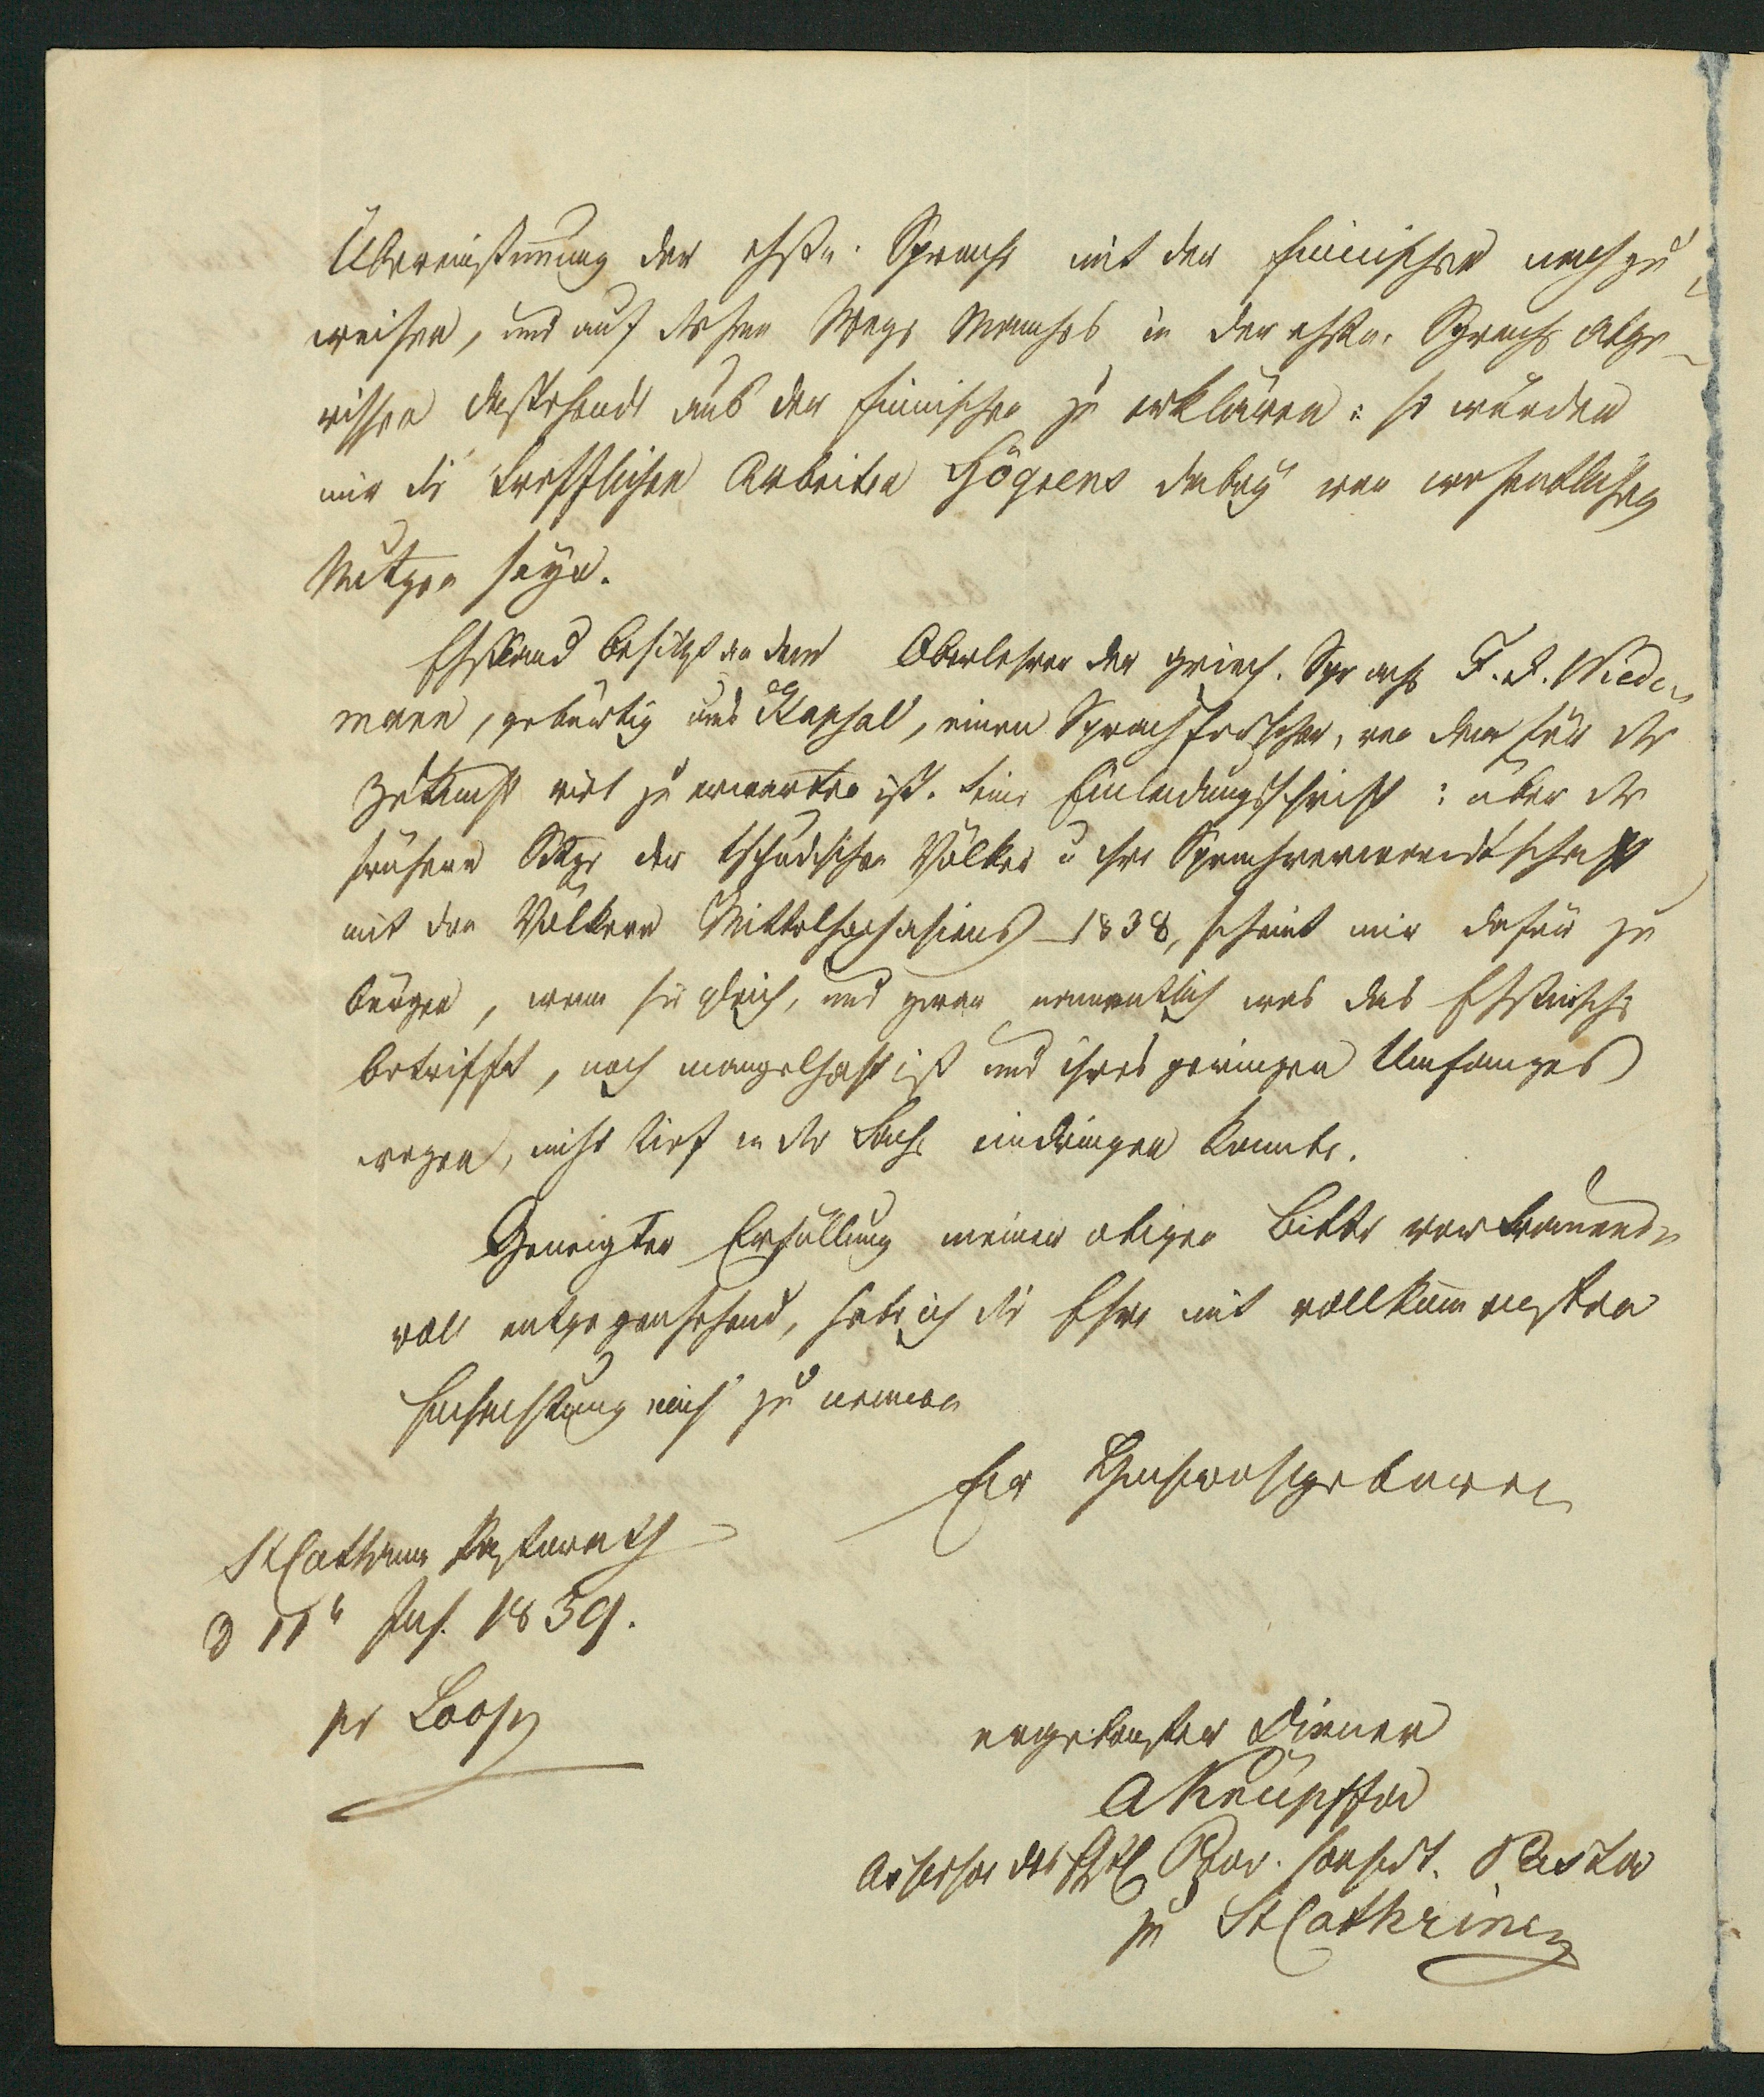 Übereinstim̄ung der ehstn. Sprache mit der finnischen nachzu-
weisen, und auf diesem Wege Manches in der ehstn. Sprache abge-
rissen dastehende aus der finnischen zu erklären: so würden
mir die trefflichen Arbeiten Sjögrens dabey von wesentlichem
Nutzen seyn.
Ehstland besitzt an dem Oberlehrer der griech. Sprache F. J. Wiede-
mann, gebürtig aus Hapsal, einen Sprachforscher, von dem für die
Zukunft viel zu erwarten ist. Seine Einladungsschrift: über die
früheren Sitze der tschudischen Völker u ihre Sprachverwandtschaft
mit den Völkern Mittelhochasiens 1838, scheint mir dafür zu
bürgen, wenn sie gleich, und zwar namentlich was das Ehstnische
betrifft, noch mangelhaft ist und ihres geringen Umfanges
wegen, nicht tief in die Sache eindringen konnte.
Geneigter Erfüllung meiner obigen Bitte vertrauens-
voll entgegensehend, habe ich die Ehre mit vollkom̄ensten
Hochachtung mich zu nennen
Ew Hochwohlgeboren
St Cathrinen Pastorath
d 11n 1839.
pr Loop
ergebenster Diener
A Knüpffer
Assessor des Ehstl. Prov. Consist. Pastor
zu St Cathrinen